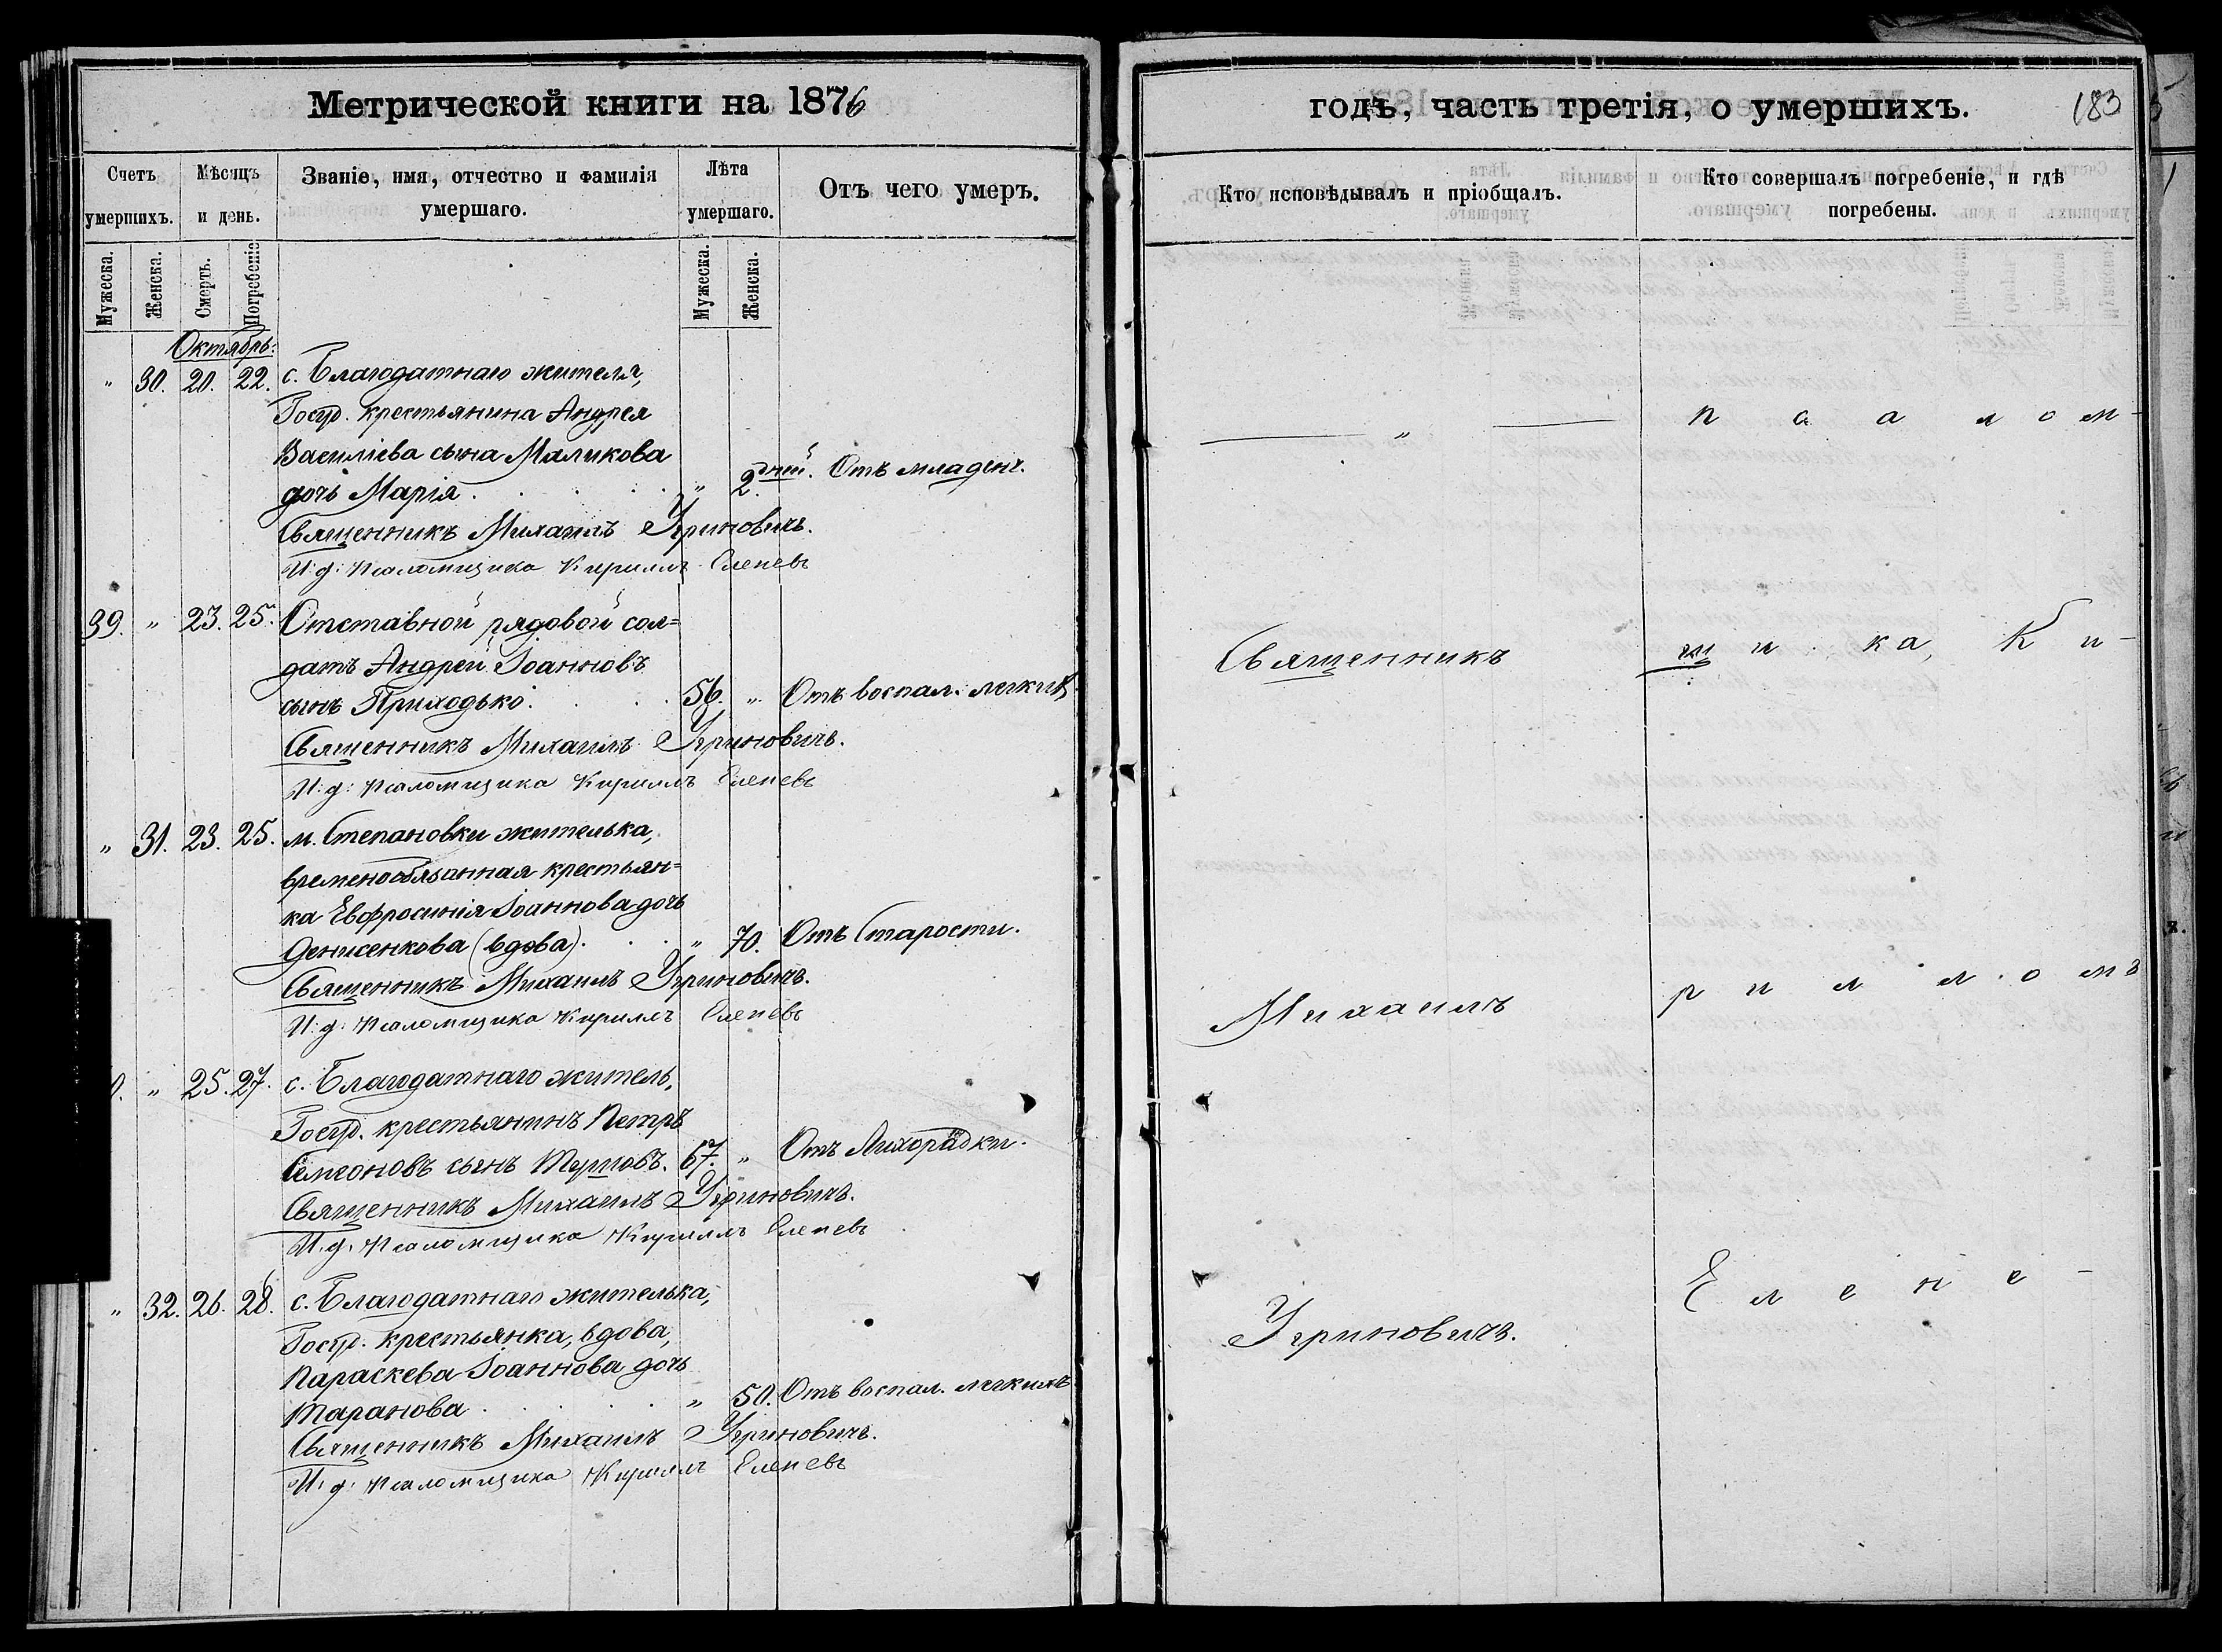 Метрической книги на 1876
Счетъ умершихъ.
Мѣсяцъ и день.
Званіе, имя, отчество и фамилія умершаго.
Лѣта умершаго.
Отъ чего умеръ.
Мужеска.
Женска.
Смерть.
Погребеніе
Мужеска.
Женска.
Октябрь:
" 30. 20. 22. с. Благодатнаго жителя,
Госуд. крестьянина Андрея
Василіева сына Маликова
дочь Марія . . . . " 2 дней. Отъ младенч.
Священникъ Михаилъ Угриновичъ.
И: д: Псаломщика Кириллъ Еленевъ
39. " 23. 25. Отставной рядовой сол=
датъ Андрей Іоанновъ
сынъ Приходько . . . . 56. " Отъ воспал. легкихъ
Священникъ Михаилъ Угриновичъ.
И: д: Псаломщика Кириллъ Еленевъ
" 31. 23. 25. м. Степановки жителька,
временообязанная крестьян=
ка Евфросинія Іоаннова дочь
Денисенкова (вдова) . . . " 70. Отъ Старости.
Священникъ Михаилъ Угриновичъ.
И: д: Псаломщика Кириллъ Еленевъ
0. " 25. 27. с. Благодатнаго житель,
Госуд. крестьянинъ Петръ
Симеоновъ сынъ 67. " Отъ Лихорадки.
Священникъ Михаилъ Угриновичъ.
И. д. Псаломщика Кириллъ Еленевъ
" 32. 26. 28. с. Благодатнаго жителька,
Госуд. крестьянка, вдова,
Параскева Іоаннова дочь
Таранова . . . . " 50. Отъ воспал. легкихъ
Священникъ Михаилъ Угриновичъ.
И. д. Псаломщика Кириллъ Еленевъ
годъ, часть третія, о умершихъ.
183
Кто исповѣдывалъ и пріобщалъ.
Кто совершалъ погребеніе, и гдѣ погребены.
— " —
Священникъ
Михаилъ
Угриновичъ.
п с а л о м -
щ и ка, К и -
р и л л о мъ
Е л е н е -